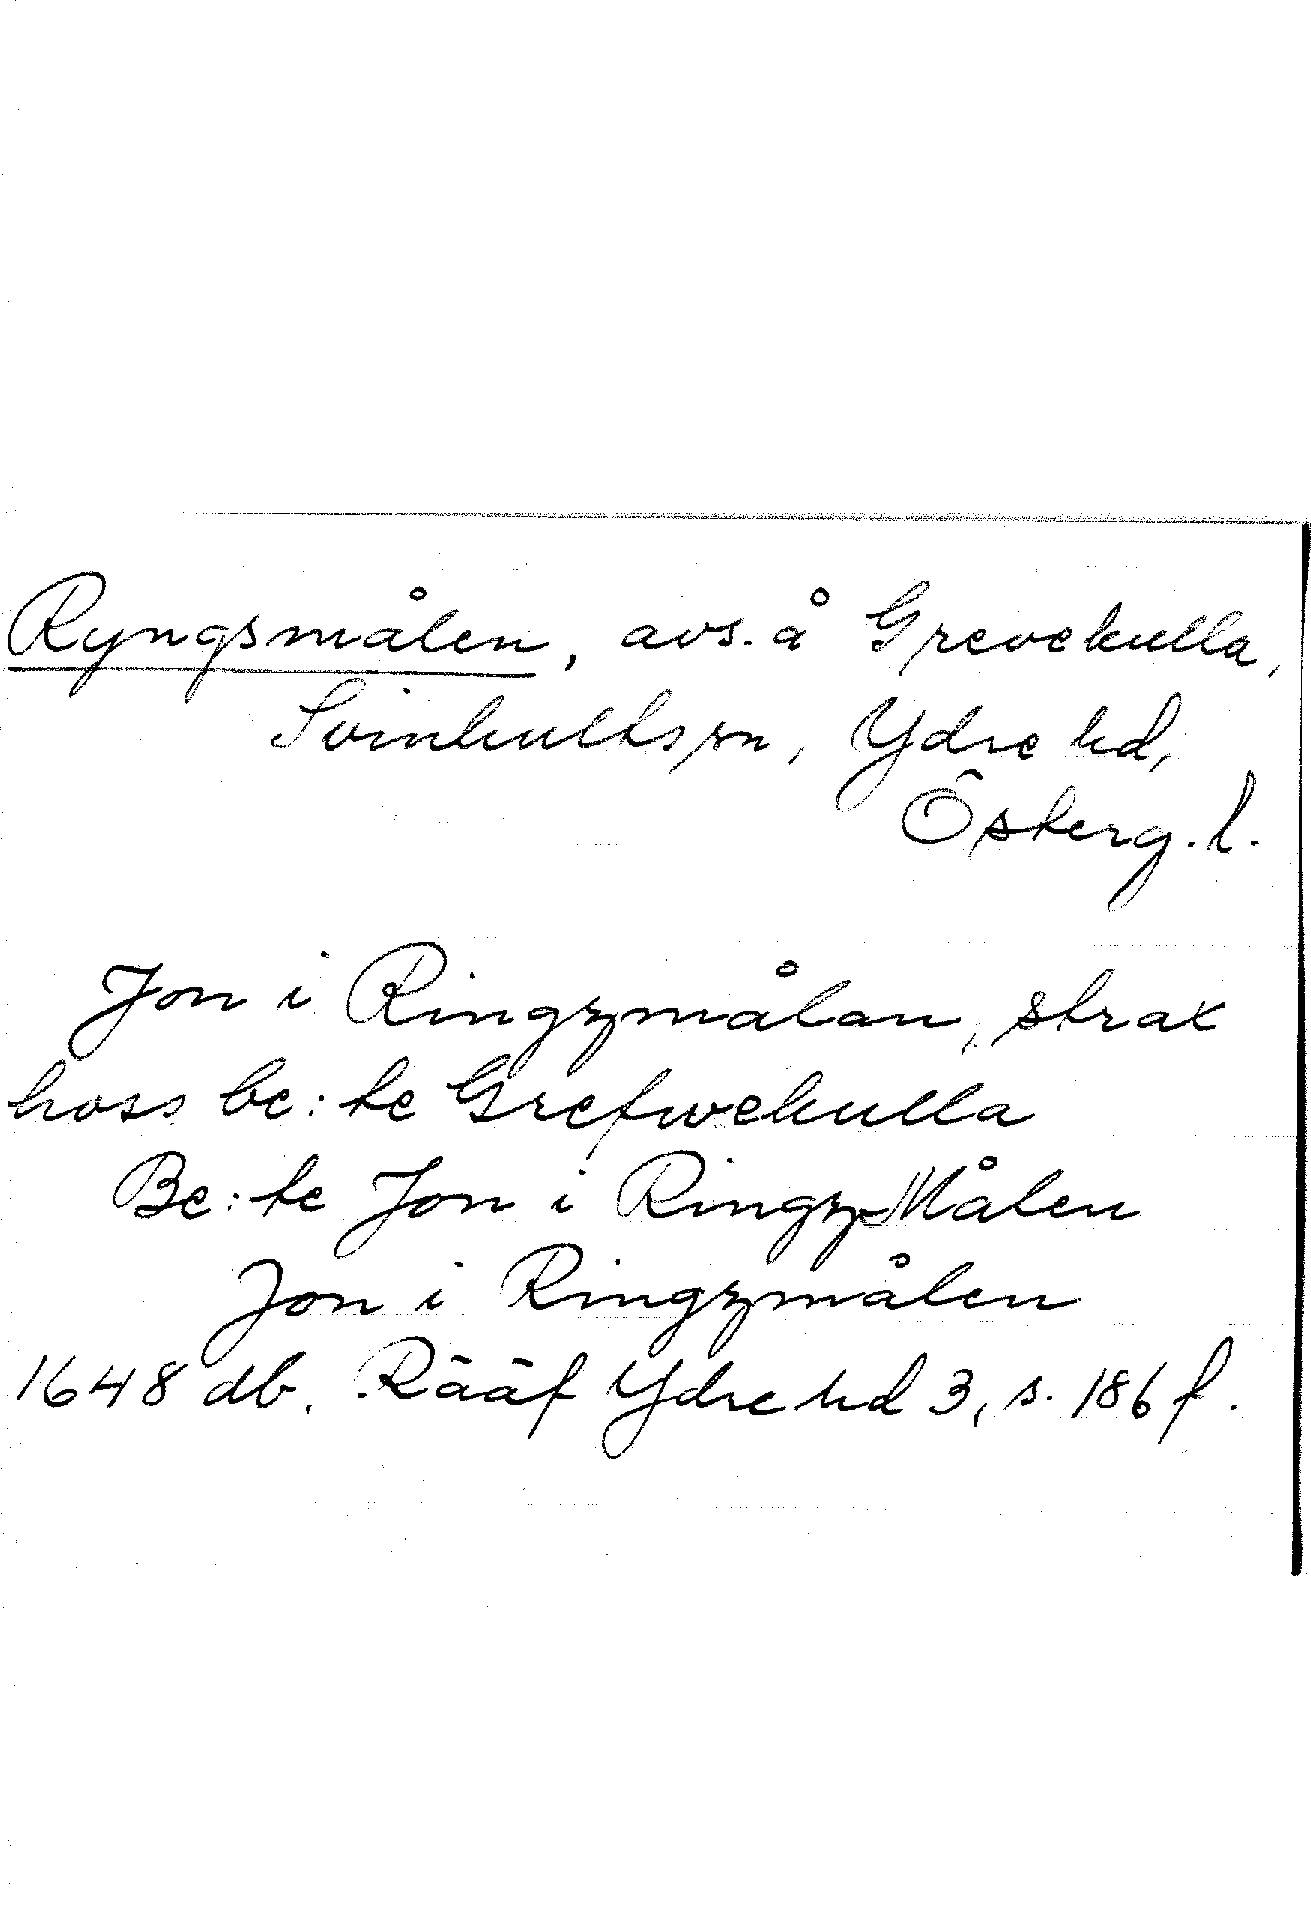 Ryngsmålen, avs. å Grevekulla,
Svinhults sn, Ydre hd,
Österg. l.
Jon i Ringzmålan, strax
hoss be:te Grefwekulla
Be:te Jon i RingzMålen
Jon i Ringzmålen
1648 db. Rääf Ydre hd 3, s. 186 f.